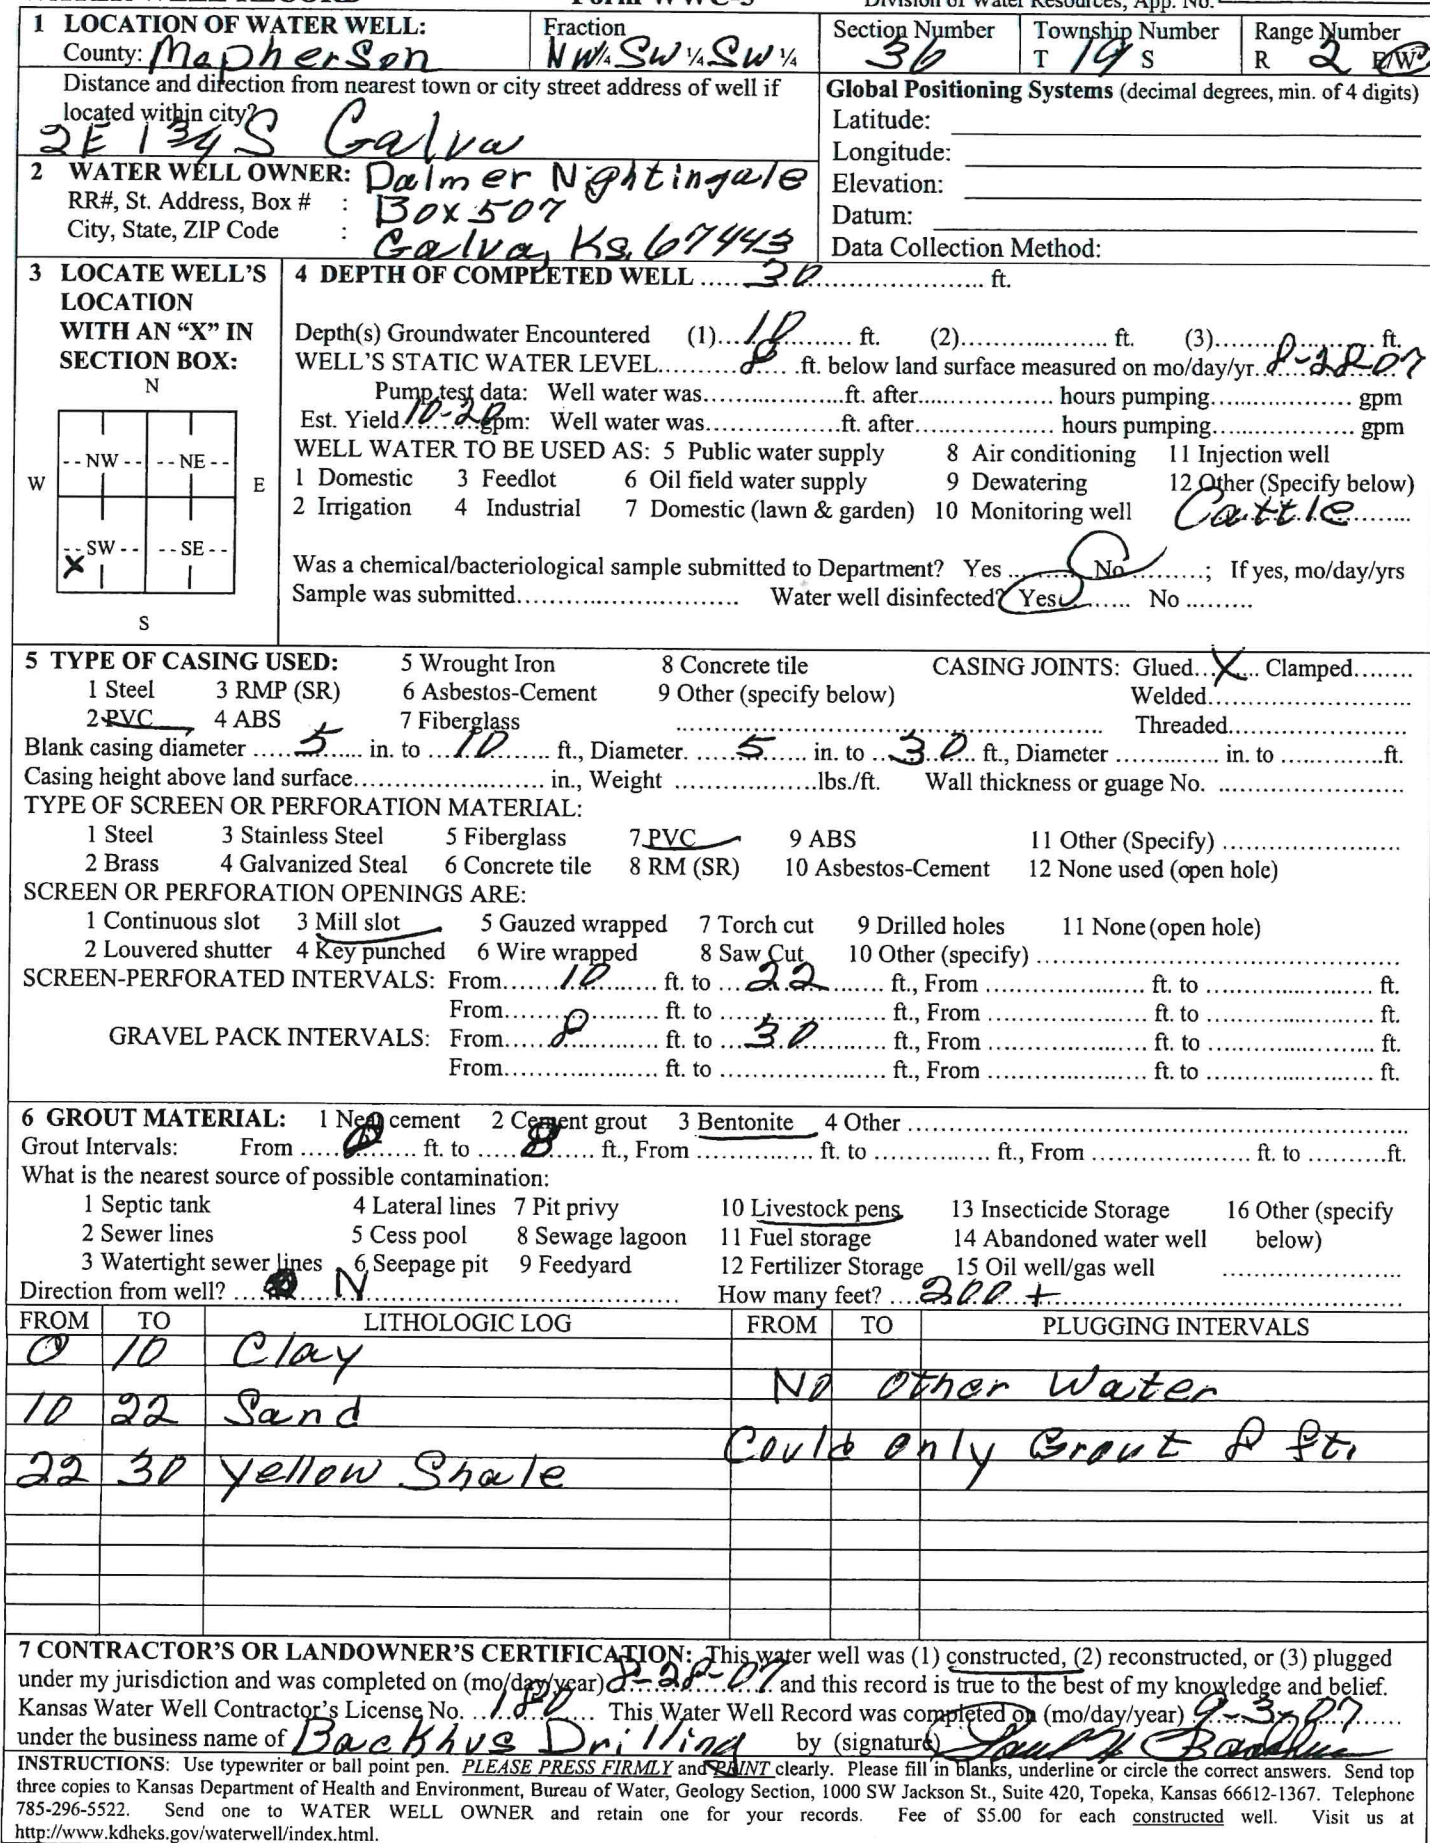 1 LOCATION OF WATER WELL: Fraction Section Number Township Number Range Number
County: Mcpherson NW ¼ SW ¼ SW ¼ 36 T 19 S R 2 E/W
Distance and direction from nearest town or city street address of well if
located within city?
2E 1 3/4 S Galva
Global Positioning Systems (decimal degrees, min. of 4 digits)
Latitude:
Longitude:
Elevation:
Datum:
Data Collection Method:
2 WATER WELL OWNER: Dalmer Nightingale
RR#, St. Address, Box # : Box 507
City, State, ZIP Code : Galva, Ks. 67443
3 LOCATE WELL'S
LOCATION
WITH AN "X" IN
SECTION BOX:
N
--NW-- --NE--
W E
--SW-- --SE--
X
S
4 DEPTH OF COMPLETED WELL ..... 30 ..... ft.
Depth(s) Groundwater Encountered (1) 10 ft. (2) ..... ft. (3) ..... ft.
WELL'S STATIC WATER LEVEL 8 ft. below land surface measured on mo/day/yr. 8-28-07
Pump test data: Well water was ..... ft. after ..... hours pumping ..... gpm
Est. Yield 10-20 gpm: Well water was ..... ft. after ..... hours pumping ..... gpm
WELL WATER TO BE USED AS: 5 Public water supply 8 Air conditioning 11 Injection well
1 Domestic 3 Feedlot 6 Oil field water supply 9 Dewatering 12 Other (Specify below)
2 Irrigation 4 Industrial 7 Domestic (lawn & garden) 10 Monitoring well Cattle
Was a chemical/bacteriological sample submitted to Department? Yes ..... No .....; If yes, mo/day/yrs
Sample was submitted ..... Water well disinfected? Yes ..... No .....
5 TYPE OF CASING USED: 5 Wrought Iron 8 Concrete tile CASING JOINTS: Glued X Clamped
1 Steel 3 RMP (SR) 6 Asbestos-Cement 9 Other (specify below) Welded
2 PVC 4 ABS 7 Fiberglass ..... Threaded
Blank casing diameter 5 in. to 10 ft., Diameter 5 in. to 30 ft., Diameter ..... in. to ..... ft.
Casing height above land surface ..... in., Weight ..... lbs./ft. Wall thickness or guage No. .....
TYPE OF SCREEN OR PERFORATION MATERIAL:
1 Steel 3 Stainless Steel 5 Fiberglass 7 PVC 9 ABS 11 Other (Specify) .....
2 Brass 4 Galvanized Steal 6 Concrete tile 8 RM (SR) 10 Asbestos-Cement 12 None used (open hole)
SCREEN OR PERFORATION OPENINGS ARE:
1 Continuous slot 3 Mill slot 5 Gauzed wrapped 7 Torch cut 9 Drilled holes 11 None (open hole)
2 Louvered shutter 4 Key punched 6 Wire wrapped 8 Saw Cut 10 Other (specify) .....
SCREEN-PERFORATED INTERVALS: From 10 ft. to 22 ft., From ..... ft. to ..... ft.
From ..... ft. to ..... ft., From ..... ft. to ..... ft.
GRAVEL PACK INTERVALS: From 8 ft. to 30 ft., From ..... ft. to ..... ft.
From ..... ft. to ..... ft., From ..... ft. to ..... ft.
6 GROUT MATERIAL: 1 Neat cement 2 Cement grout 3 Bentonite 4 Other .....
Grout Intervals: From 0 ft. to 8 ft., From ..... ft. to ..... ft., From ..... ft. to ..... ft.
What is the nearest source of possible contamination:
1 Septic tank 4 Lateral lines 7 Pit privy 10 Livestock pens 13 Insecticide Storage 16 Other (specify
2 Sewer lines 5 Cess pool 8 Sewage lagoon 11 Fuel storage 14 Abandoned water well below)
3 Watertight sewer lines 6 Seepage pit 9 Feedyard 12 Fertilizer Storage 15 Oil well/gas well .....
Direction from well? N How many feet? 200 +
FROM TO LITHOLOGIC LOG FROM TO PLUGGING INTERVALS
0 10 Clay
No Other Water
10 22 Sand
Could only Grout 8 ft.
22 30 Yellow Shale
7 CONTRACTOR'S OR LANDOWNER'S CERTIFICATION: This water well was (1) constructed, (2) reconstructed, or (3) plugged
under my jurisdiction and was completed on (mo/day/year) 8-28-07 and this record is true to the best of my knowledge and belief.
Kansas Water Well Contractor's License No. 180 This Water Well Record was completed on (mo/day/year) 9-3-07
under the business name of Backhus Drilling by (signature)
INSTRUCTIONS: Use typewriter or ball point pen. PLEASE PRESS FIRMLY and PRINT clearly. Please fill in blanks, underline or circle the correct answers. Send top
three copies to Kansas Department of Health and Environment, Bureau of Water, Geology Section, 1000 SW Jackson St., Suite 420, Topeka, Kansas 66612-1367. Telephone
785-296-5522. Send one to WATER WELL OWNER and retain one for your records. Fee of $5.00 for each constructed well. Visit us at
http://www.kdheks.gov/waterwell/index.html.